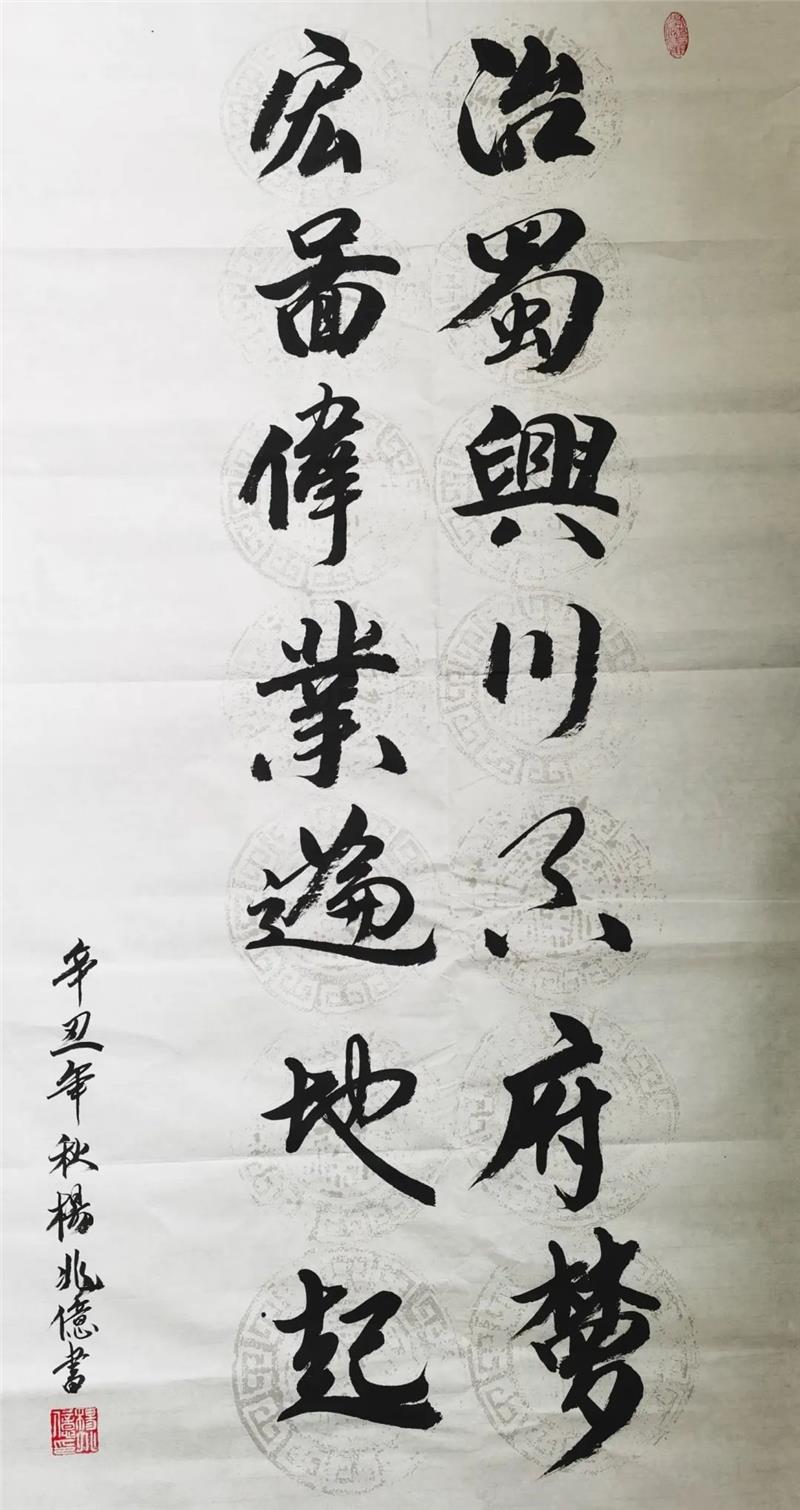 治蜀興川天府夢
宏啚偉業遍地起
辛丑年秋楊兆億書